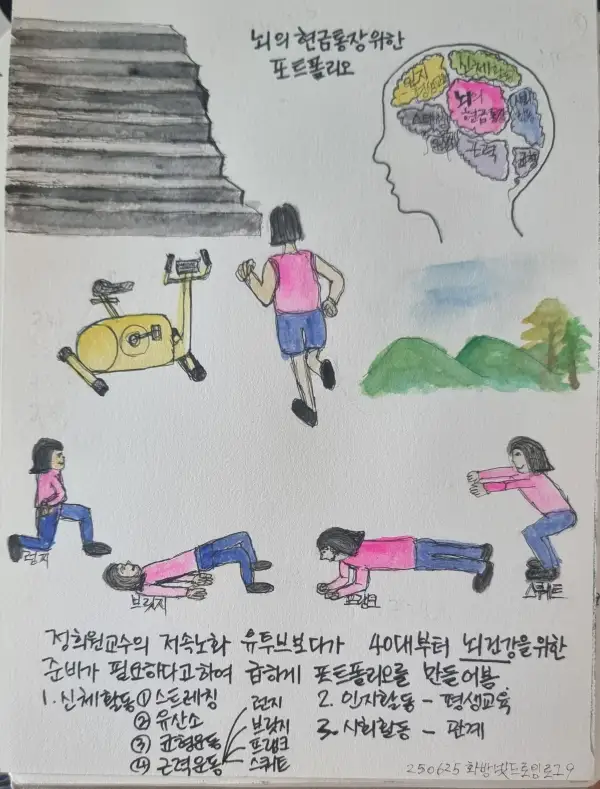 뇌의 현금통장위한
포트폴리오
인지
신체활동
뇌의
현금통장
사회
활동
스트레칭
근력
균형
런지
브릿지
프랭크
스쿼트
정희원교수의 저속노화 유투브보다가 40대부터 뇌건강을위한
준비가 필요하다고하여 급하게 포트폴리오를 만들어봄
1. 신체활동 ① 스트레칭 런지 2. 인지활동 - 평생교육
② 유산소 브릿지
③ 균형운동 프랭크 3. 사회활동 - 관계
④ 근력운동 스쿼트
250625 화방넷드로잉로그9